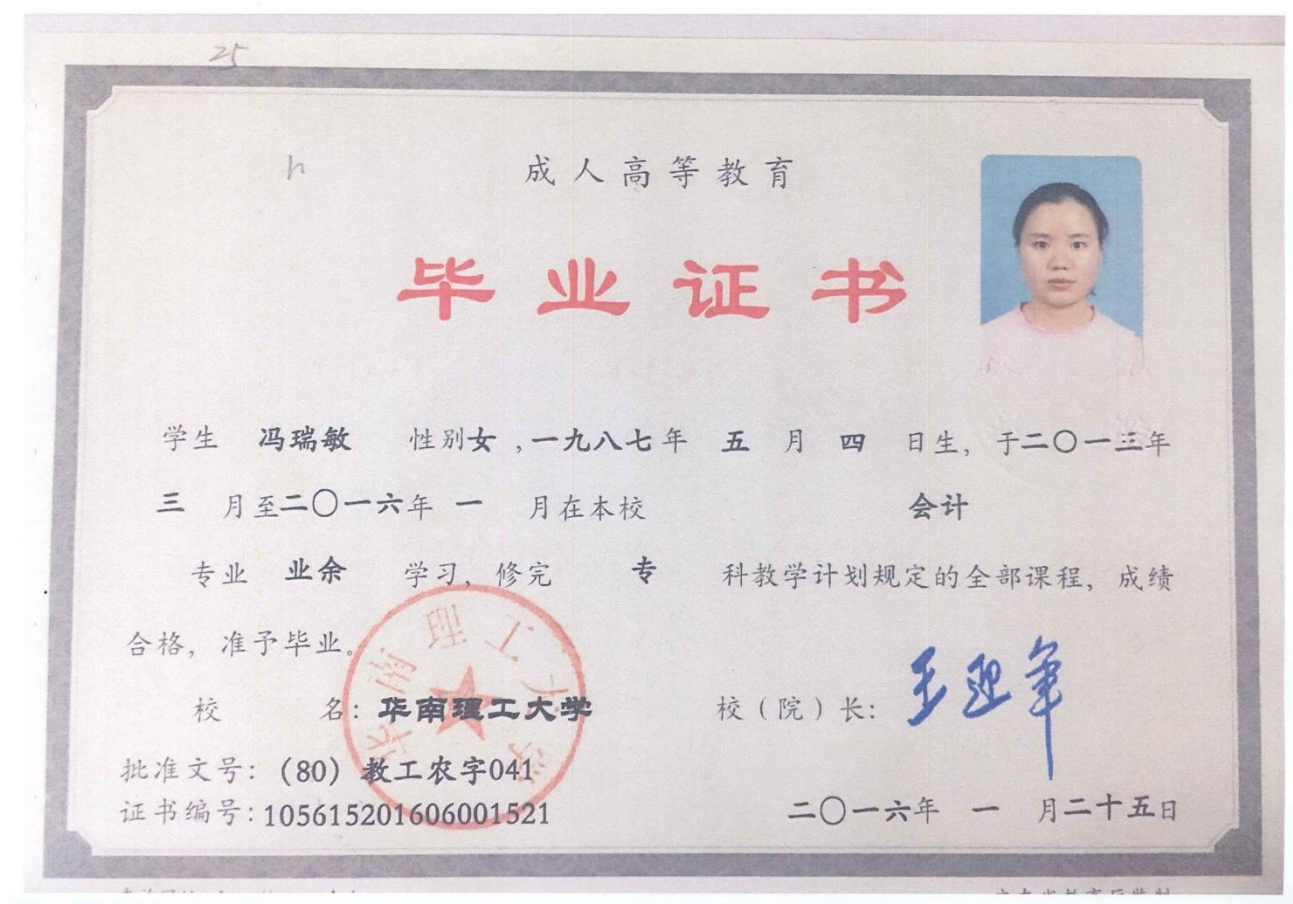 25
h
成人高等教育
毕业证书
学生 冯瑞敏 性别女,一九八七年 五 月 四 日生, 于二〇一三年
三 月至二〇一六年 一 月在本校 会计
专业 业余 学习, 修完 专 科教学计划规定的全部课程, 成绩
合格, 准予毕业。
华南理工大学
校 名: 华南理工大学 校(院)长: 王迎军
批准文号: (80) 教工农字041
证书编号: 105615201606001521 二〇一六年 一 月二十五日